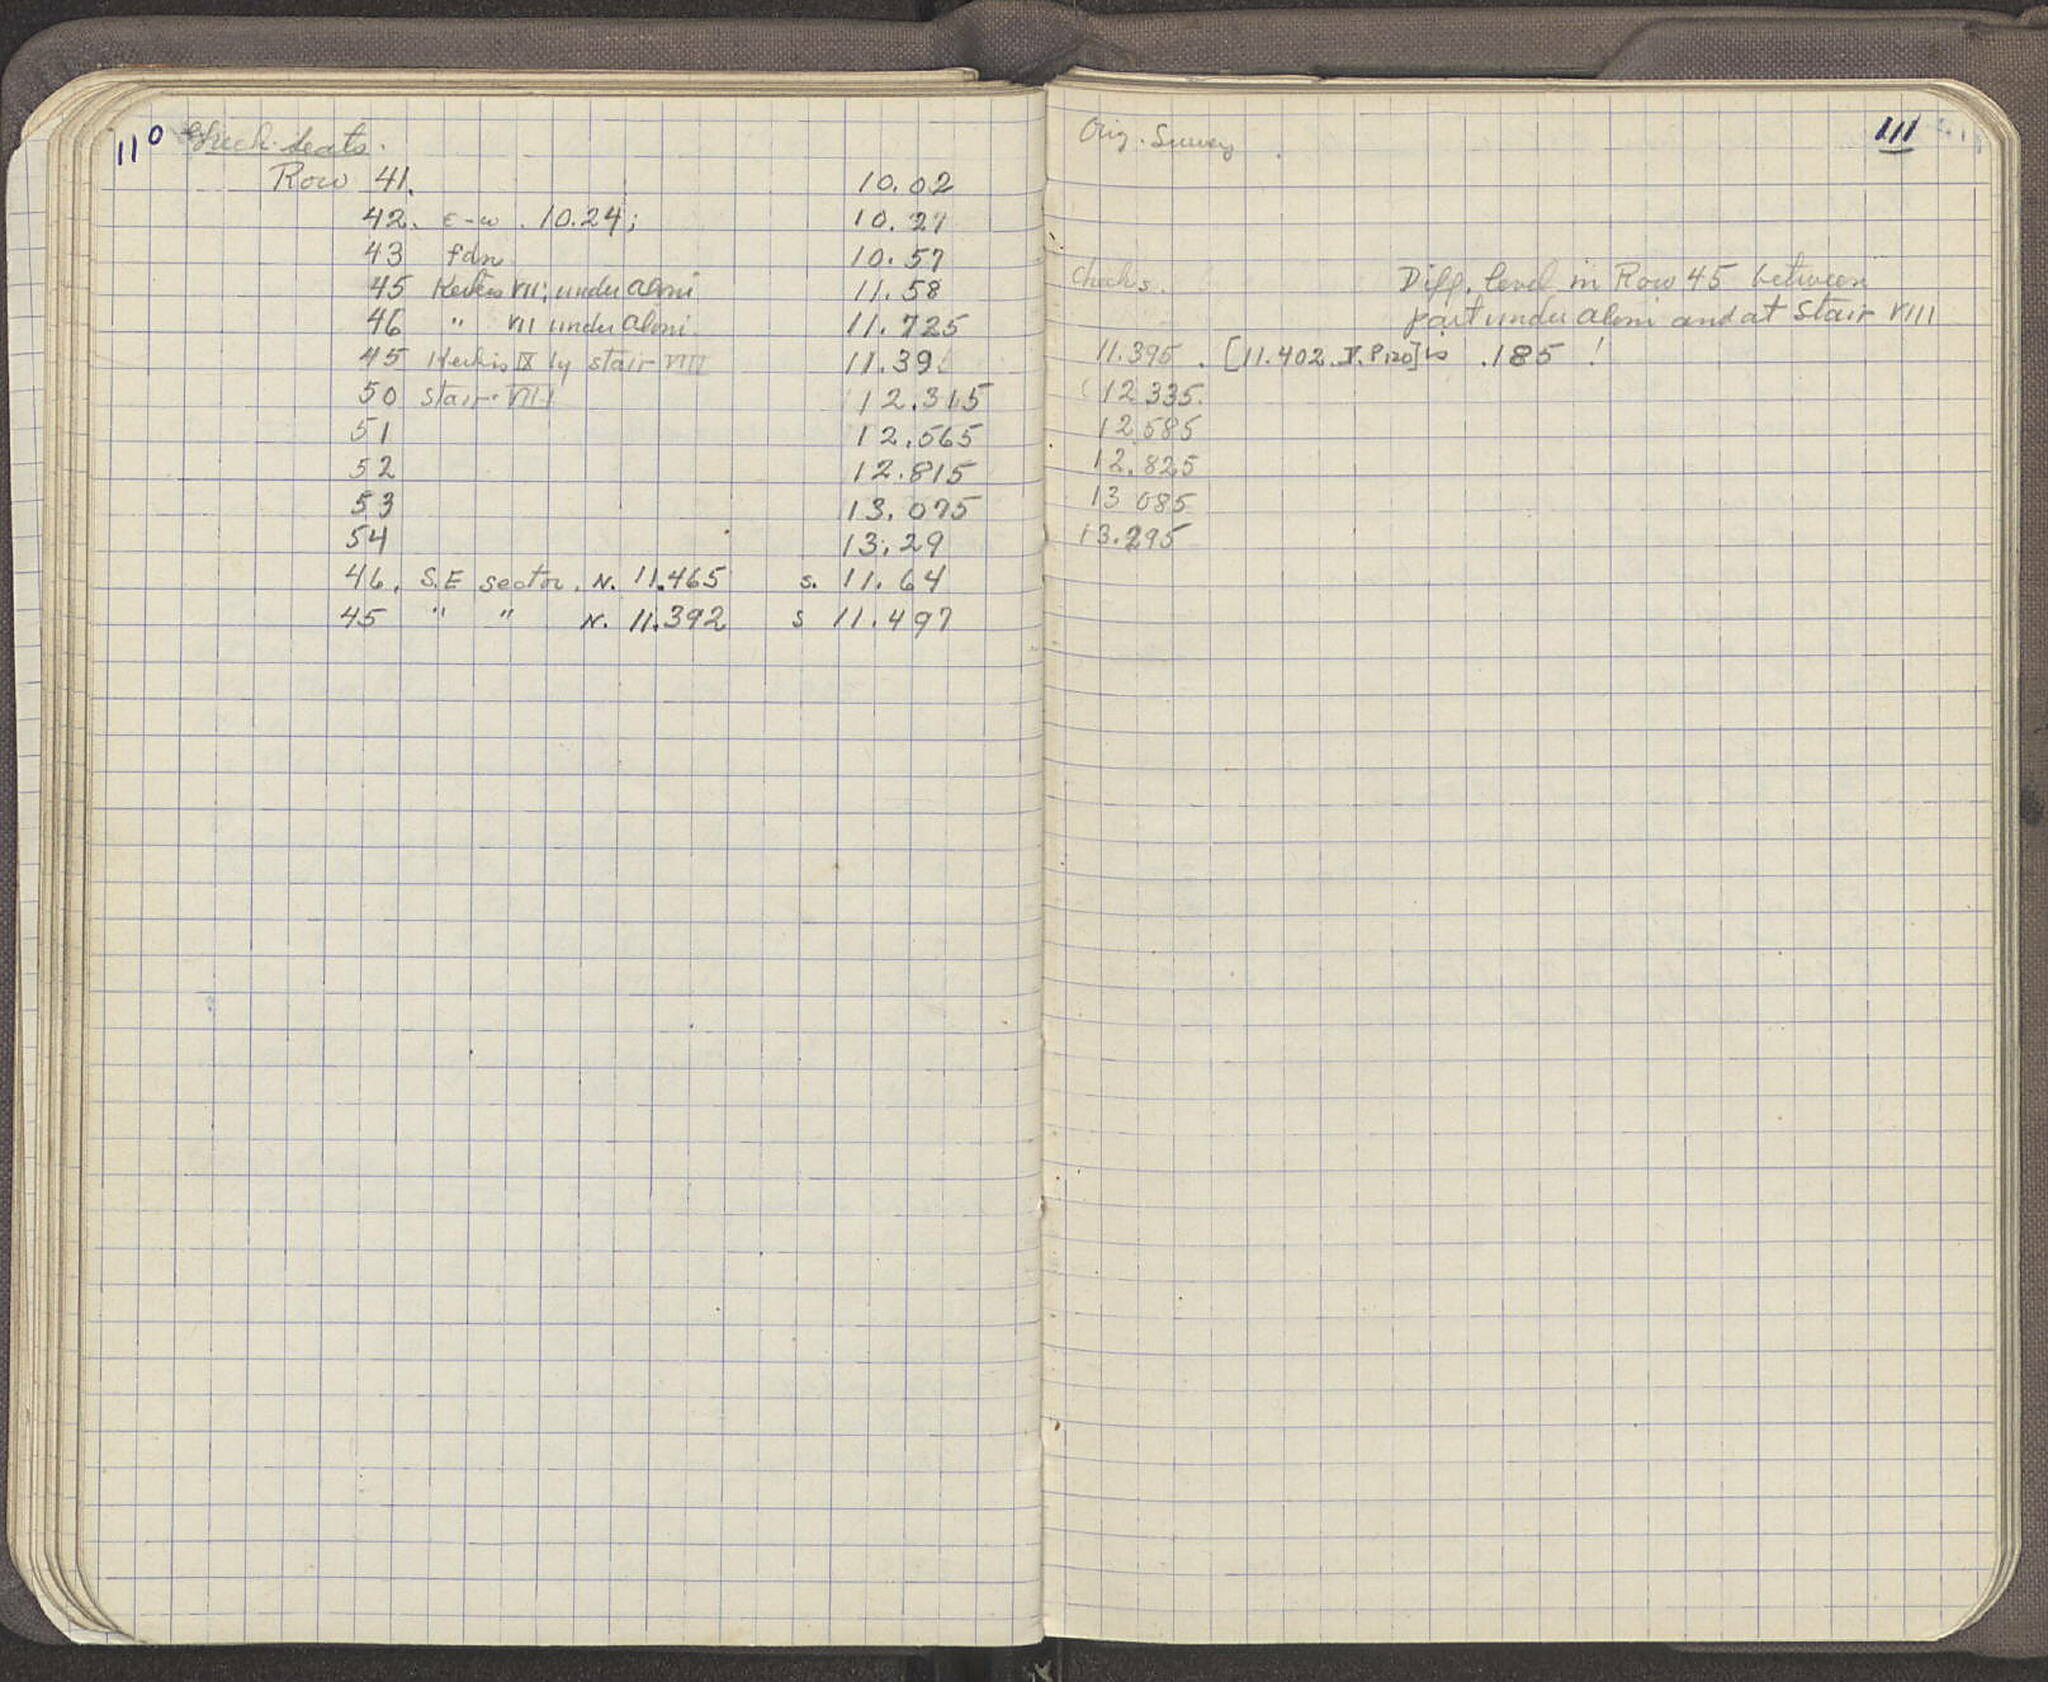 110 Greek Seats.
Row 41. 10.02
42. E-W. 10.24; 10.27
43 fdn 10.57
45 Kerkis VII; under aloni 11.58
46 " VII under aloni. 11.725
45 Kerkis IX by stair VIII 11.39
50 Stair. VIII 12.315
51 12.565
52 12.815
53 13.075
54 13.29
46. S.E sector. N. 11.465 S. 11.64
45 " " N. 11.392 S 11.497
Orig. Survey. 111
Checks. Diff. level in Row 45 between
part under aloni and at Stair VIII
11.395. [11.402. V. P.120] is .185 !
(12 335.
12 585
12.825
13 085
13.295